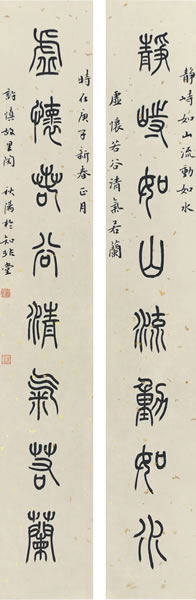 靜峙如山流動如水
靜峙如山流動如水
虛懷若谷清氣若蘭
時在庚子新春正月
虛懷若谷清氣若蘭
許慎故里閆秋滿於知非堂